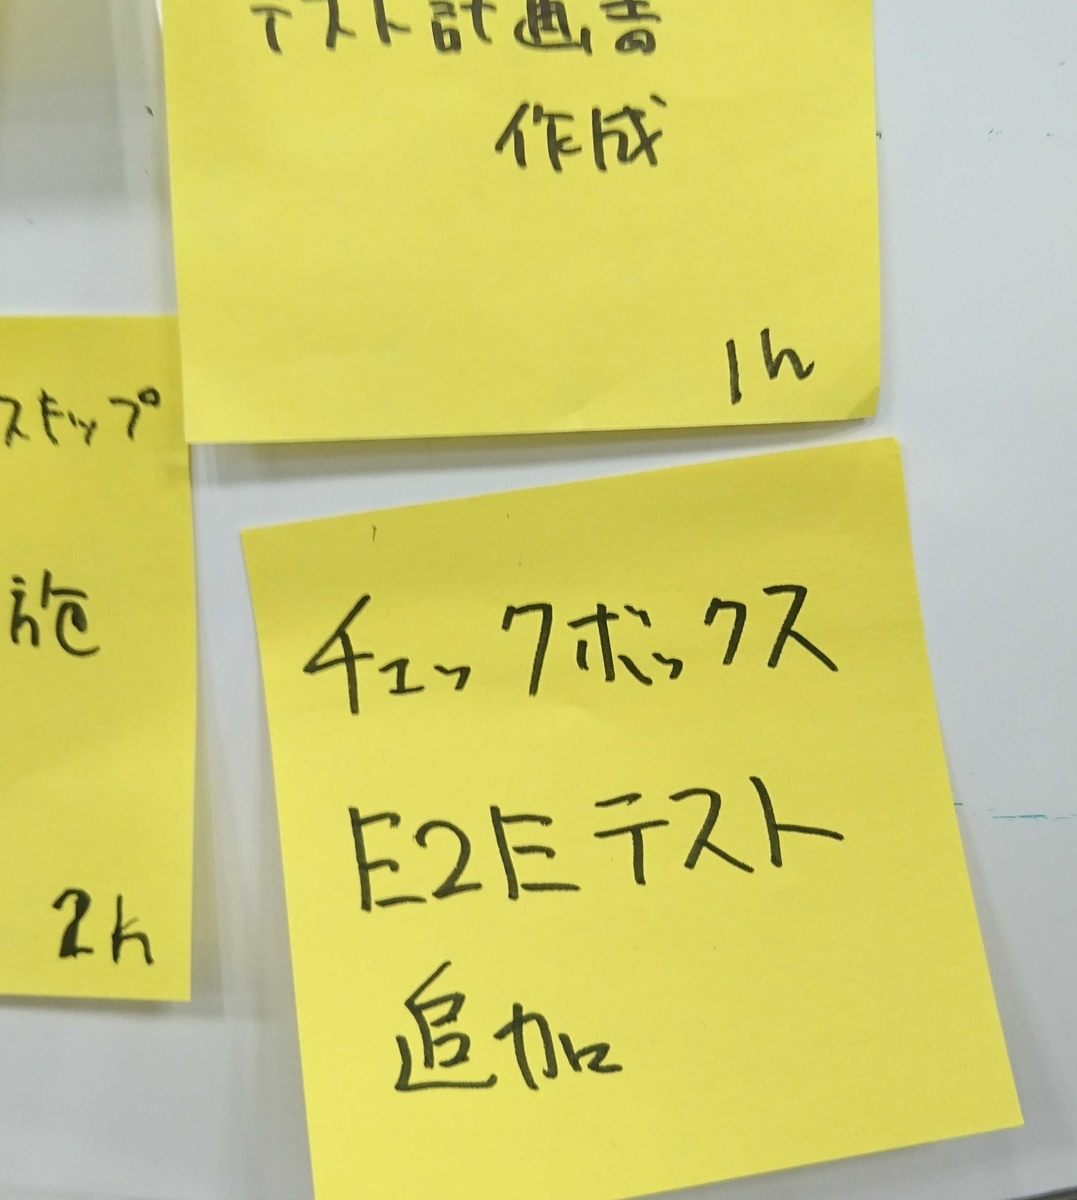 テスト計画書
作成
1h
スキップ
施
2h
チェックボックス
E2Eテスト
追加